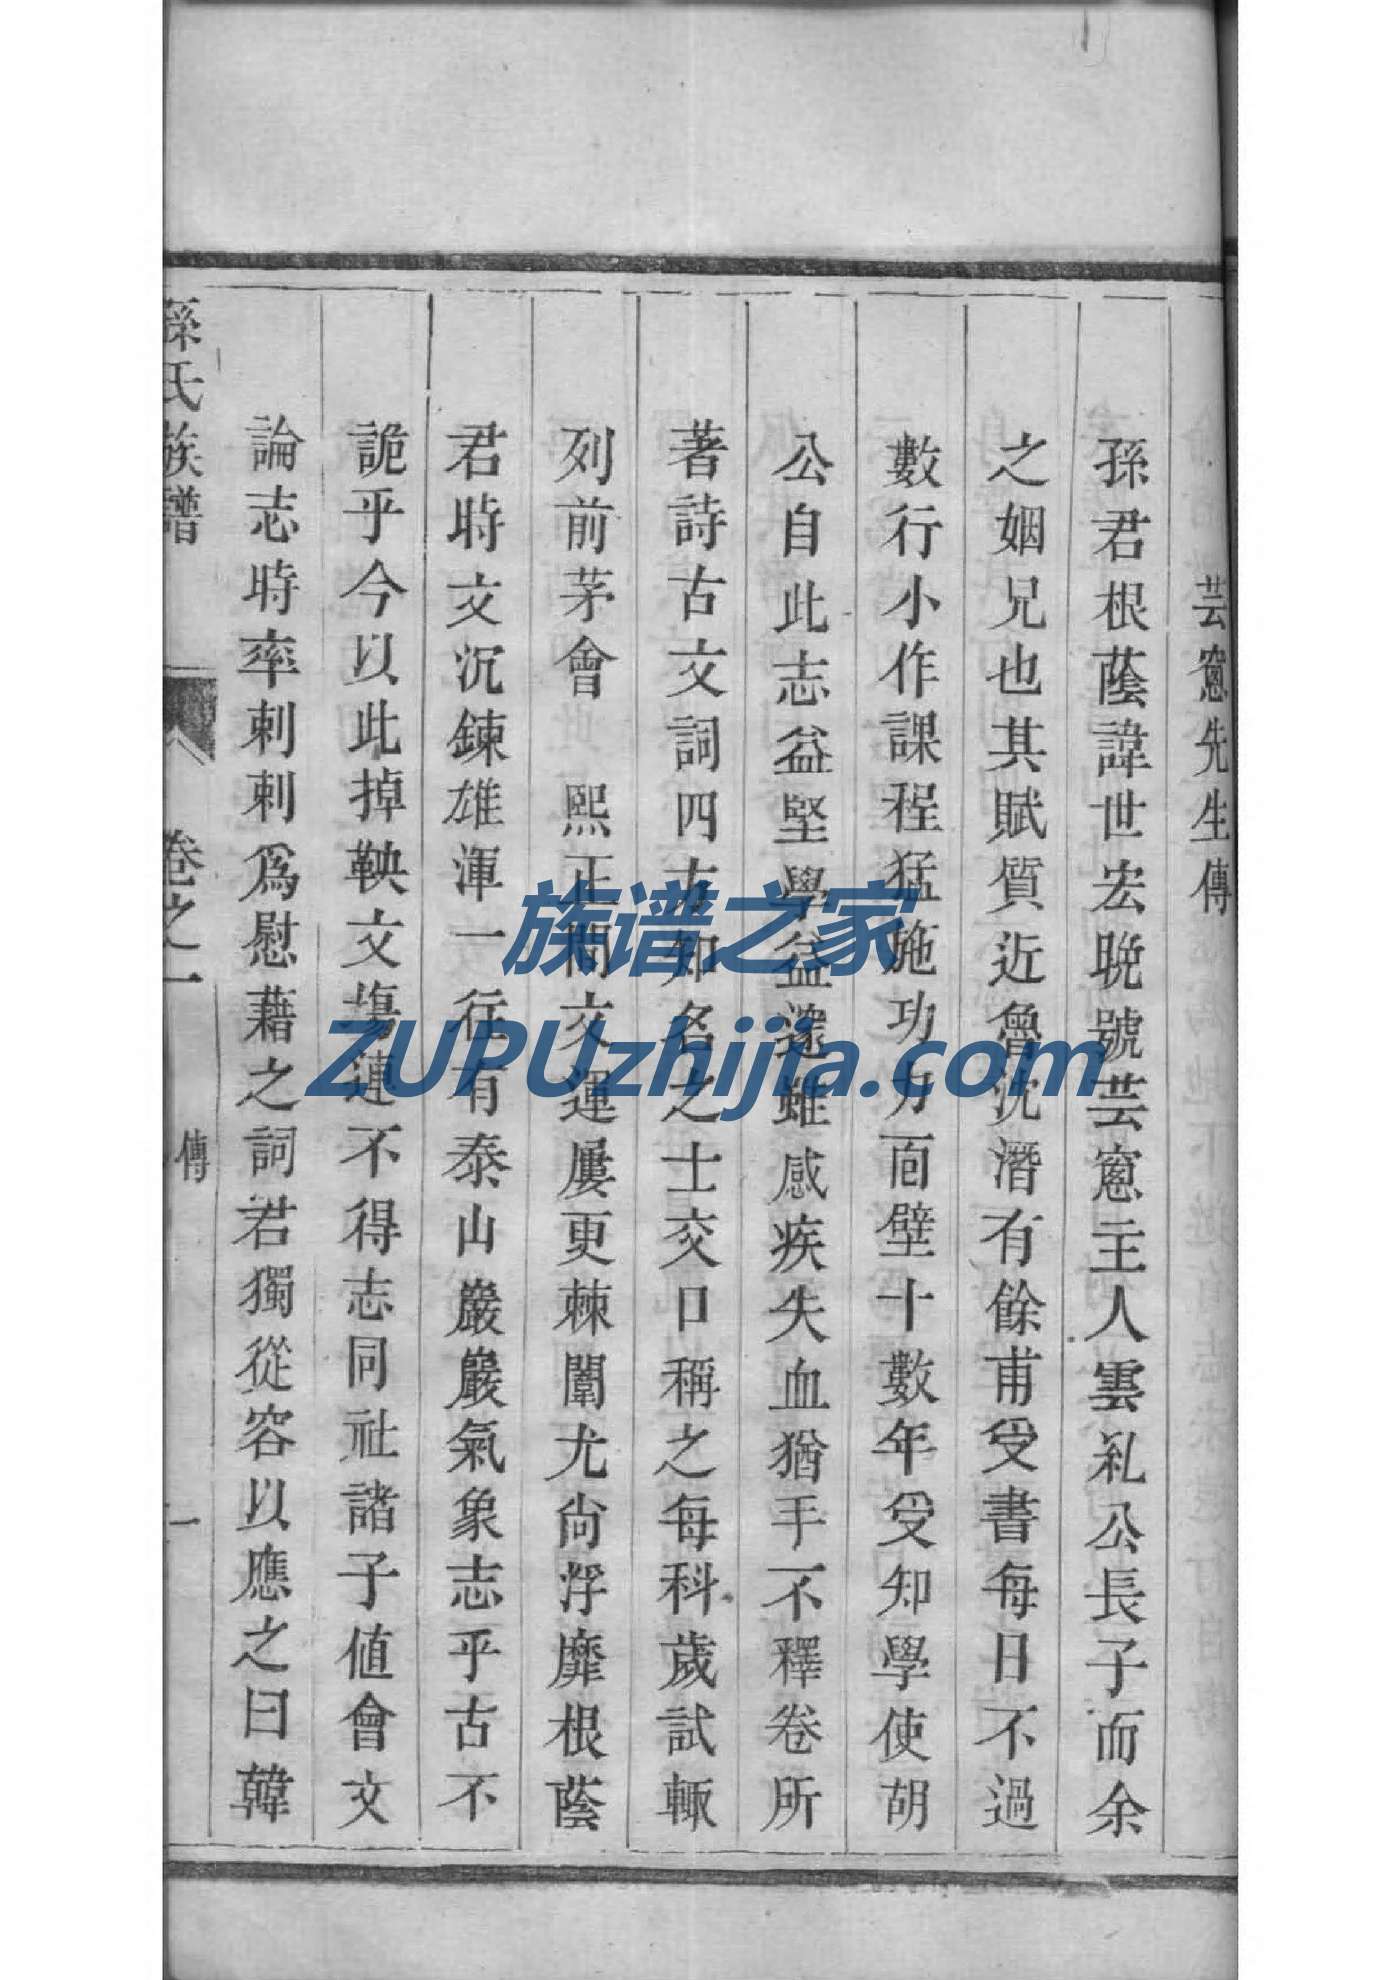 芸窻先生傳
孫君根蔭諱世宏晩號芸窻主人雲礼公長子而余
之姻兄也其賦質近魯沈潛有餘甫受書每日不過
數行小作課程猛施功力面壁十數年受知學使胡
公自此志益堅學益邃雖感疾失血猶手不釋卷所
著詩古文詞四方知名之士交口稱之每科歲試輙
列前茅會 熙正間文運屢更棘闈尤尙浮靡根蔭
君時文沉鍊雄渾一往有泰山巖巖氣象志乎古不
詭乎今以此掉鞅文塲連不得志同社諸子值會文
論志時率剌剌爲慰藉之詞君獨從容以應之曰韓
孫氏族譜
卷之一
傳
一
族谱之家
ZUPUzhijia.com